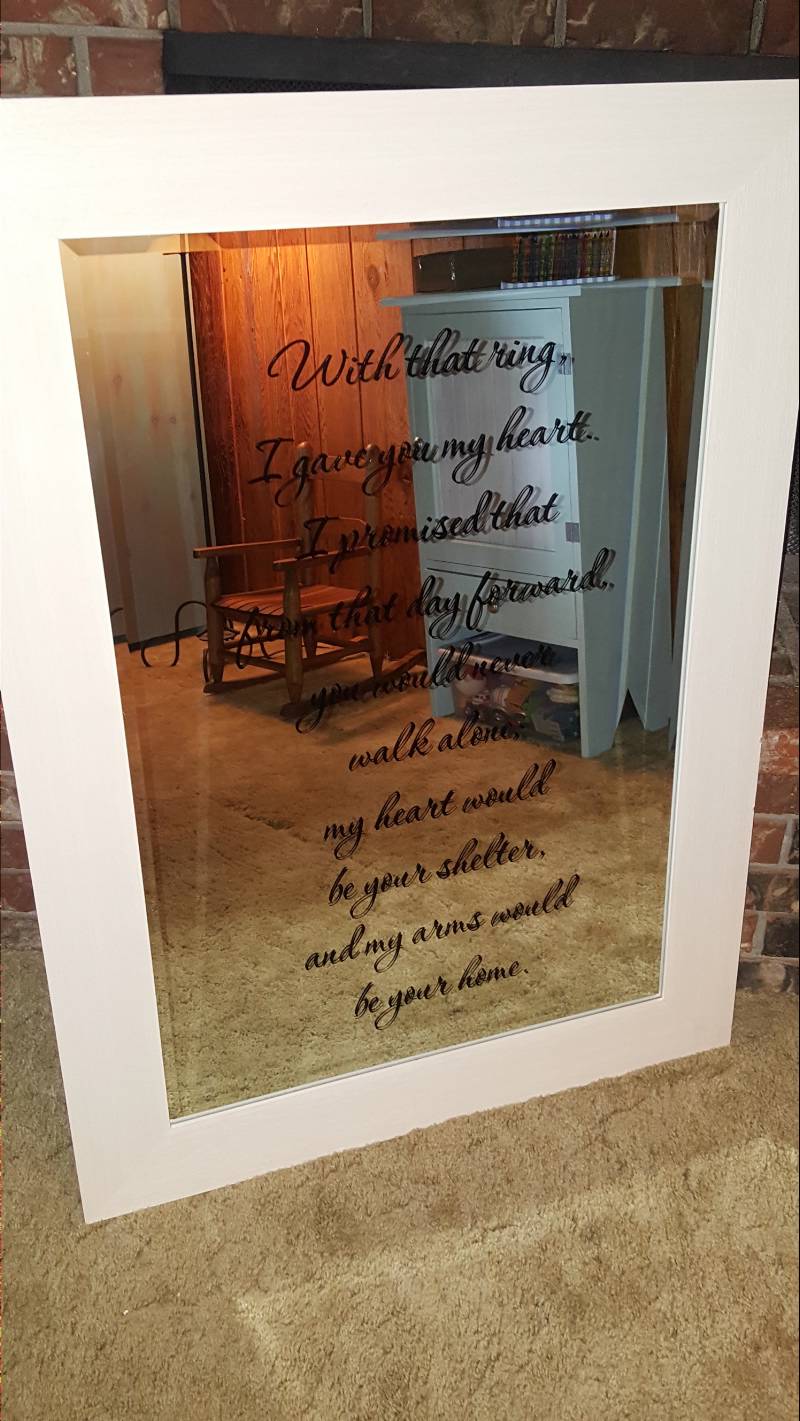 With that ring,
I gave you my heart.
I promised that
from that day forward,
you would never
walk alone;
my heart would
be your shelter,
and my arms would
be your home.